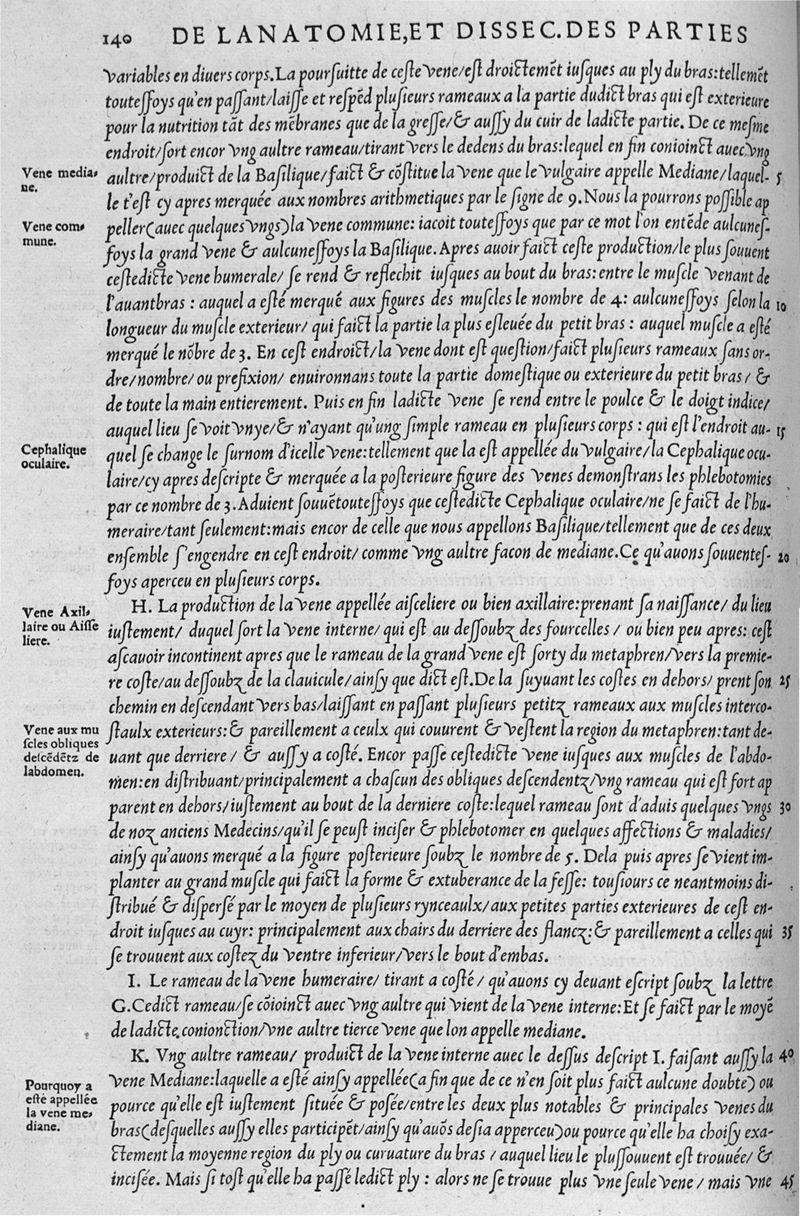 140 DE LANATOMIE, ET DISSEC. DES PARTIES
variables en diuers corps. La poursuitte de ceste vene/est droictemēt iusques au ply du bras: tellemēt
toutesfoys qu'en passant/laisse et respēd plusieurs rameaux a la partie dudict bras qui est exterieure
pour la nutrition tāt des mēbranes que de la gresse/& aussy du cuir de ladicte partie. De ce mesme
endroit/sort encor vng aultre rameau/tirant vers le dedens du bras: lequel en fin conioinct auec vng
Vene media-
ne.
aultre/produict de la Basilique/faict & cōstitue la vene que le vulgaire appelle Mediane/laquel- 5
le t'est cy apres merquée aux nombres arithmetiques par le signe de 9. Nous la pourrons possible ap
Vene com-
mune.
peller (auec quelques vngs) la vene commune: iacoit toutesfoys que par ce mot l'on entēde aulcunes-
foys la grand vene & aulcunesfoys la Basilique. Apres auoir faict ceste production/le plus souuent
cestedicte vene humerale/ se rend & reflechit iusques au bout du bras: entre le muscle venant de
l'auantbras : auquel a esté merqué aux figures des muscles le nombre de 4: aulcunesfoys selon la 10
longueur du muscle exterieur/ qui faict la partie la plus esleuée du petit bras : auquel muscle a esté
merqué le nōbre de 3. En cest endroict/la vene dont est question/faict plusieurs rameaux sans or-
dre/nombre/ ou prefixion/ enuironnans toute la partie domestique ou exterieure du petit bras/ &
de toute la main entierement. Puis en fin ladicte vene se rend entre le poulce & le doigt indice/
auquel lieu se voit vnye/& n'ayant qu'ung simple rameau en plusieurs corps : qui est l'endroit au- 15
Cephalique
oculaire.
quel se change le surnom d'icelle vene: tellement que la est appellée du vulgaire/la Cephalique ocu-
laire/cy apres descripte & merquée a la posterieure figure des venes demonstrans les phlebotomies
par ce nombre de 3. Aduient souuētoutesfoys que cestedicte Cephalique oculaire/ne se faict de l'hu-
meraire/tant seulement: mais encor de celle que nous appellons Basilique/tellement que de ces deux
ensemble s'engendre en cest endroit/ comme vng aultre facon de mediane. Ce qu'auons souuentes- 20
foys aperceu en plusieurs corps.
Vene Axil-
laire ou Aisse
liere.
H. La production de la vene appellée aisceliere ou bien axillaire: prenant sa naissance/ du lieu
iustement/ duquel sort la vene interne/ qui est au dessoubz des fourcelles / ou bien peu apres: cest
ascauoir incontinent apres que le rameau de la grand vene est sorty du metaphren/vers la premie-
re coste/au dessoubz de la clauicule/ainsy que dict est. De la suyuant les costes en dehors/ prent son 25
chemin en descendant vers bas/laissant en passant plusieurs petitz rameaux aux muscles interco-
Vene aux mu
scles obliques
descēdētz de
labdomen.
staulx exterieurs: & pareillement a ceulx qui couurent & vestent la region du metaphren: tant de-
uant que derriere / & aussy a costé. Encor passe cestedicte vene iusques aux muscles de l'abdo-
men: en distribuant/principalement a chascun des obliques descendentz/vng rameau qui est fort ap
parent en dehors/iustement au bout de la derniere coste: lequel rameau sont d'aduis quelques vngs 30
de noz anciens Medecins/qu'il se peust inciser & phlebotomer en quelques affections & maladies/
ainsy qu'auons merqué a la figure posterieure soubz le nombre de 5. Dela puis apres se vient im-
planter au grand muscle qui faict la forme & extuberance de la fesse: tousiours ce neantmoins di-
stribué & dispersé par le moyen de plusieurs rynceaulx/aux petites parties exterieures de cest en-
droit iusques au cuyr: principalement aux chairs du derriere des flancz: & pareillement a celles qui 35
se trouuent aux costez du ventre inferieur/vers le bout d'embas.
I. Le rameau de la vene humeraire/ tirant a costé / qu'auons cy deuant escript soubz la lettre
G. Cedict rameau/se cōioinct auec vng aultre qui vient de la vene interne: Et se faict par le moyē
de ladicte conionction/vne aultre tierce vene que lon appelle mediane.
K. Vng aultre rameau/ produict de la vene interne auec le dessus descript I. faisant aussy la 40
Pourquoy a
esté appellée
la vene me-
diane.
vene Mediane: laquelle a esté ainsy appellée (a fin que de ce n'en soit plus faict aulcune doubte) ou
pource qu'elle est iustement située & posée/entre les deux plus notables & principales venes du
bras (desquelles aussy elles participēt/ainsy qu'auōs desia apperceu) ou pource qu'elle ha choisy exa-
ctement la moyenne region du ply ou curuature du bras / auquel lieu le plussouuent est trouuée/ &
incisée. Mais si tost qu'elle ha passé ledict ply : alors ne se trouue plus vne seule vene/ mais vne 45